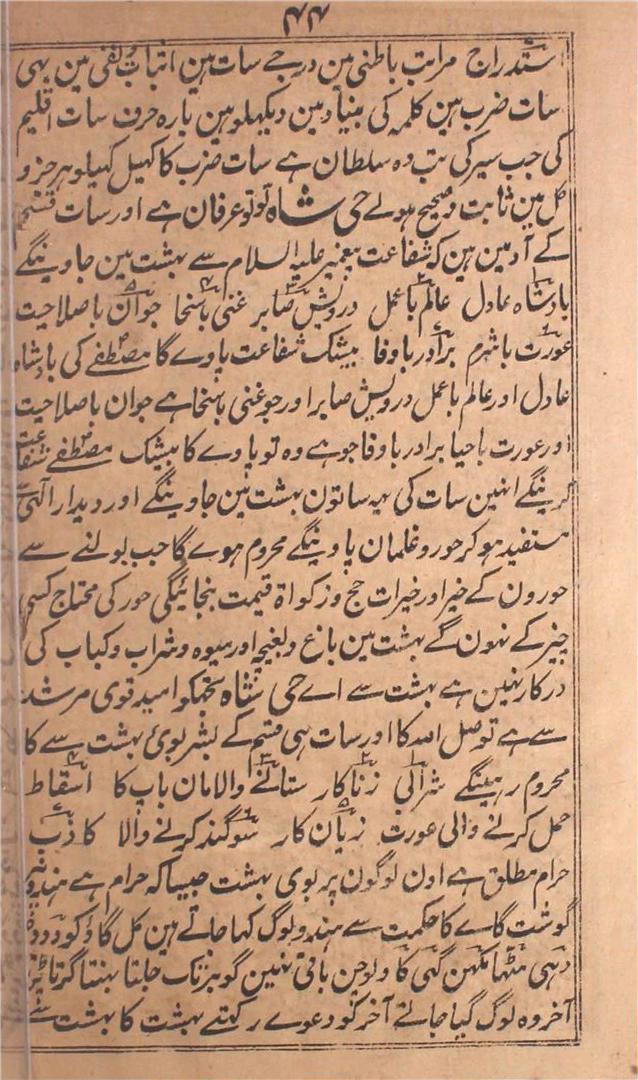 ۴۴
استدراج مراتب باطنی مین درجے سات ہین اثبات نفی مین بہی
سات ضرب ہین کلمہ کی بنیاد مین دیکہلو ہین بارہ حرف سات اقلیم
کی جب سیر کی تب دہ سلطان ہے سات ضرب کا کہیل کہیلو ہر جزو
کل مین ثابت و صحیح ہولے حی شاہ تو تو عرفان ہے اور سات قسم
کے آدمین ہین کہ شفاعت پیغمبر علیہ السلام سے بہشت مین جاوینگے
بادشاہ عادل عالم باعمل درویش صابر غنی باسنحا جوان باصلاحیت
عورت باشرم برادر باوفا بیشک شفاعت پاوے گا مصطفے کی بادشاہ
عادل اور عالم باعمل درویش صابر اور جو غنی باسنحا ہے جوان باصلاحیت
اور عورت باحیا برادر باوفا جو ہے وہ تو پاوے گا بیشک مصطفے شفاعت
کرینگے انہین سات کی یہ ساتون بہشت مین جاوینگے اور دیدار الٰہی سے
مستفید ہو کر حور و غلمان پاوینگے محروم ہوے گا جب بولنے سے
حورون کے خیر اور خیرات حج و زکواة قیمت بنجائیگی حور کی محتاج کسی
چیز کے نہون گے بہشت مین باغ و بغیچہ اور میوہ و شراب و کباب کی
درکار نہین ہے بہشت سے اے حی شاہ تجہکو امید قوی مرشد
سے ہے تو صل اللہ کا اور سات ہی قسم کے بشر بوئ بہشت سے کا
محروم رہینگے شرابی زناکار ستانے والا مان باپ کا اسقاط
حمل کرنے والی عورت زیان کار سوگند کرنے والا کاذب
حرام مطلق ہے اون لوگون پر بوی بہشت جیسا کہ حرام ہے ہندو پر
گوشت گاے کا حکمت سے ہندو لوگ کہا جاتے ہین کل گاؤ کو دودہ
دہی مٹہا مکہن گہی کا ولوجن باقی نہین گوبر تک جلتا بہنتا گرتا پڑتا
آخر وہ لوگ گیا جانے آخر کو دعوے رکہتے بہشت کا بہشت سے